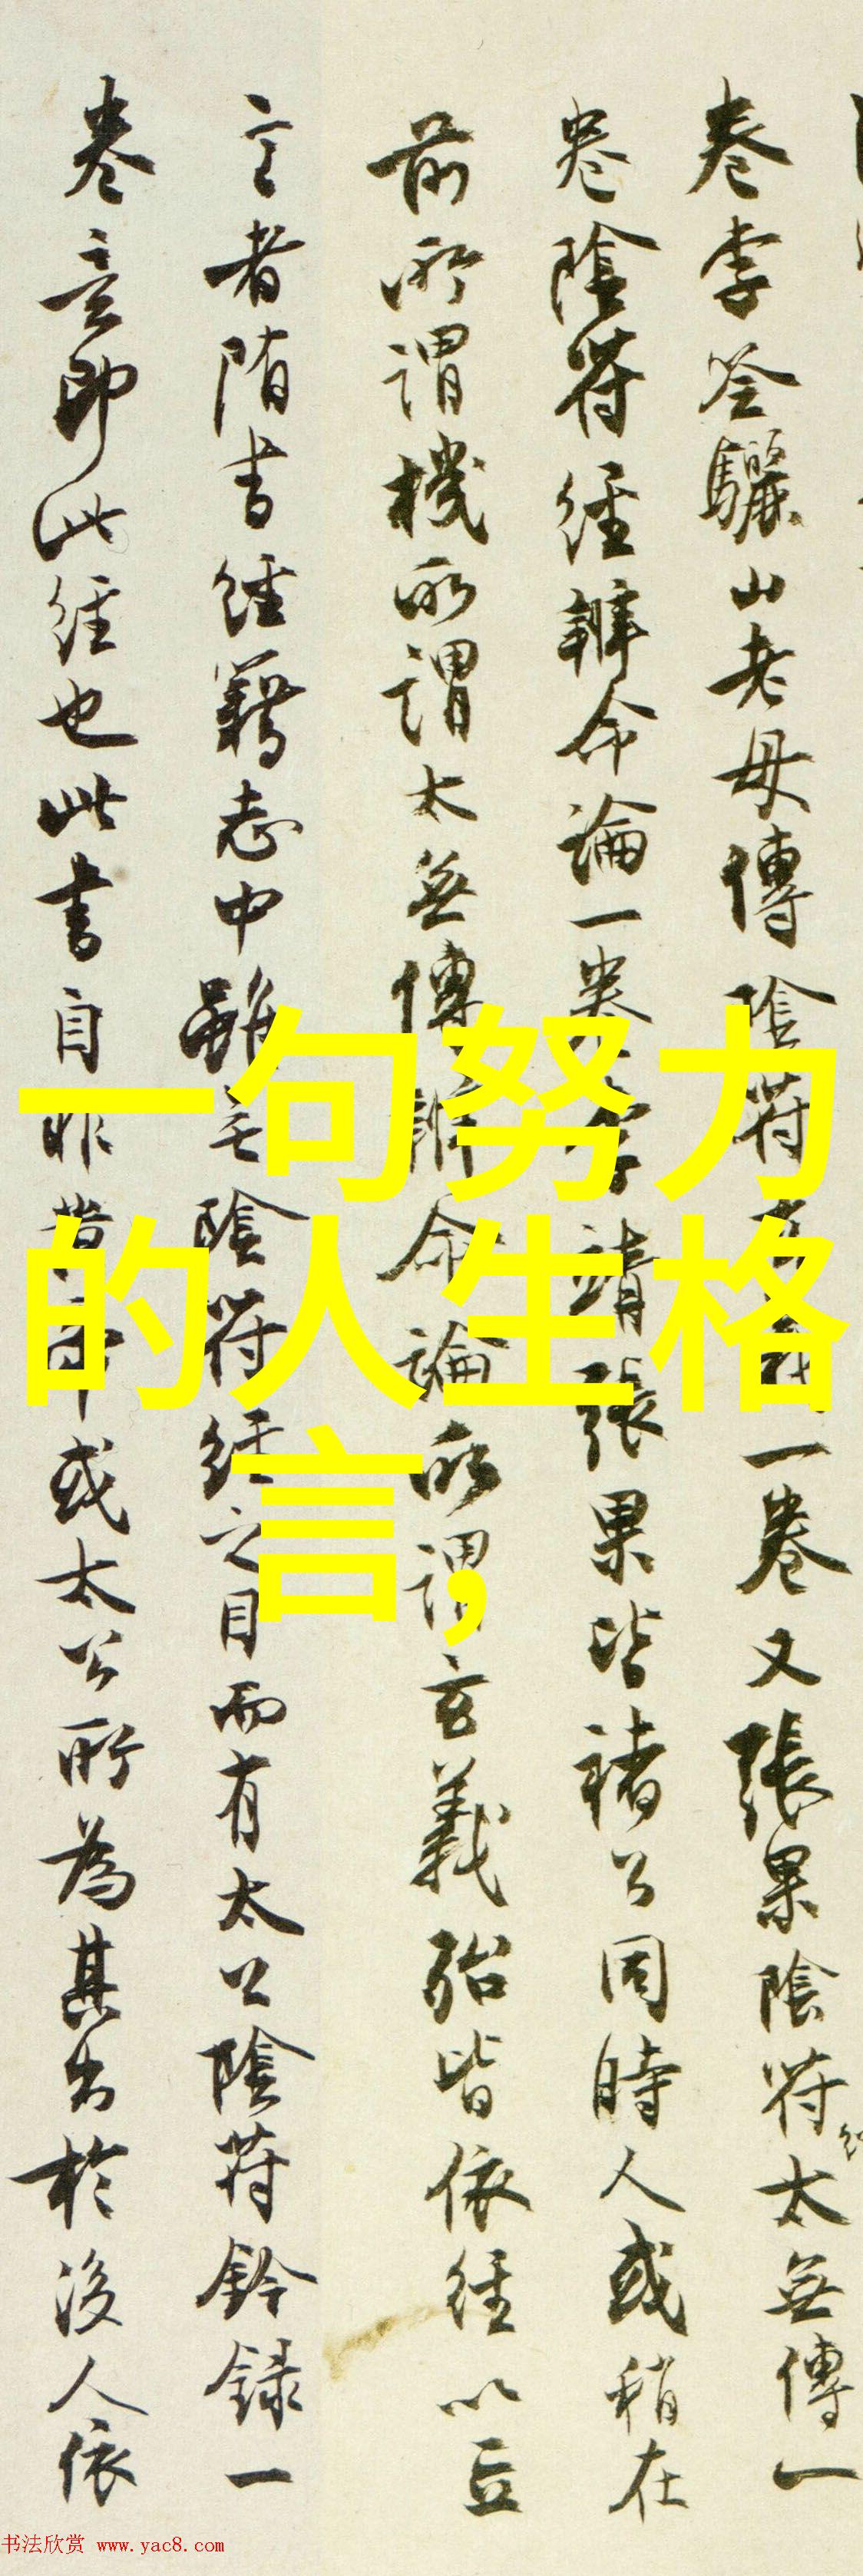 卷李筌驪山老母傳陰符玄義一卷又張果陰符太無傳一
卷陰符經辨命論一卷李靖張果皆褚公同時人或稍在
前所謂機所謂太無傳辨命論所謂玄義殆皆依經以立
言者隋書經籍志中雖無陰符經之目而有太公陰符鈐録一
卷意即此經也此書自非黄帝或太公所為其出於後人依
一句努力
的人生格
言,
书法欣赏 www.yac8.com